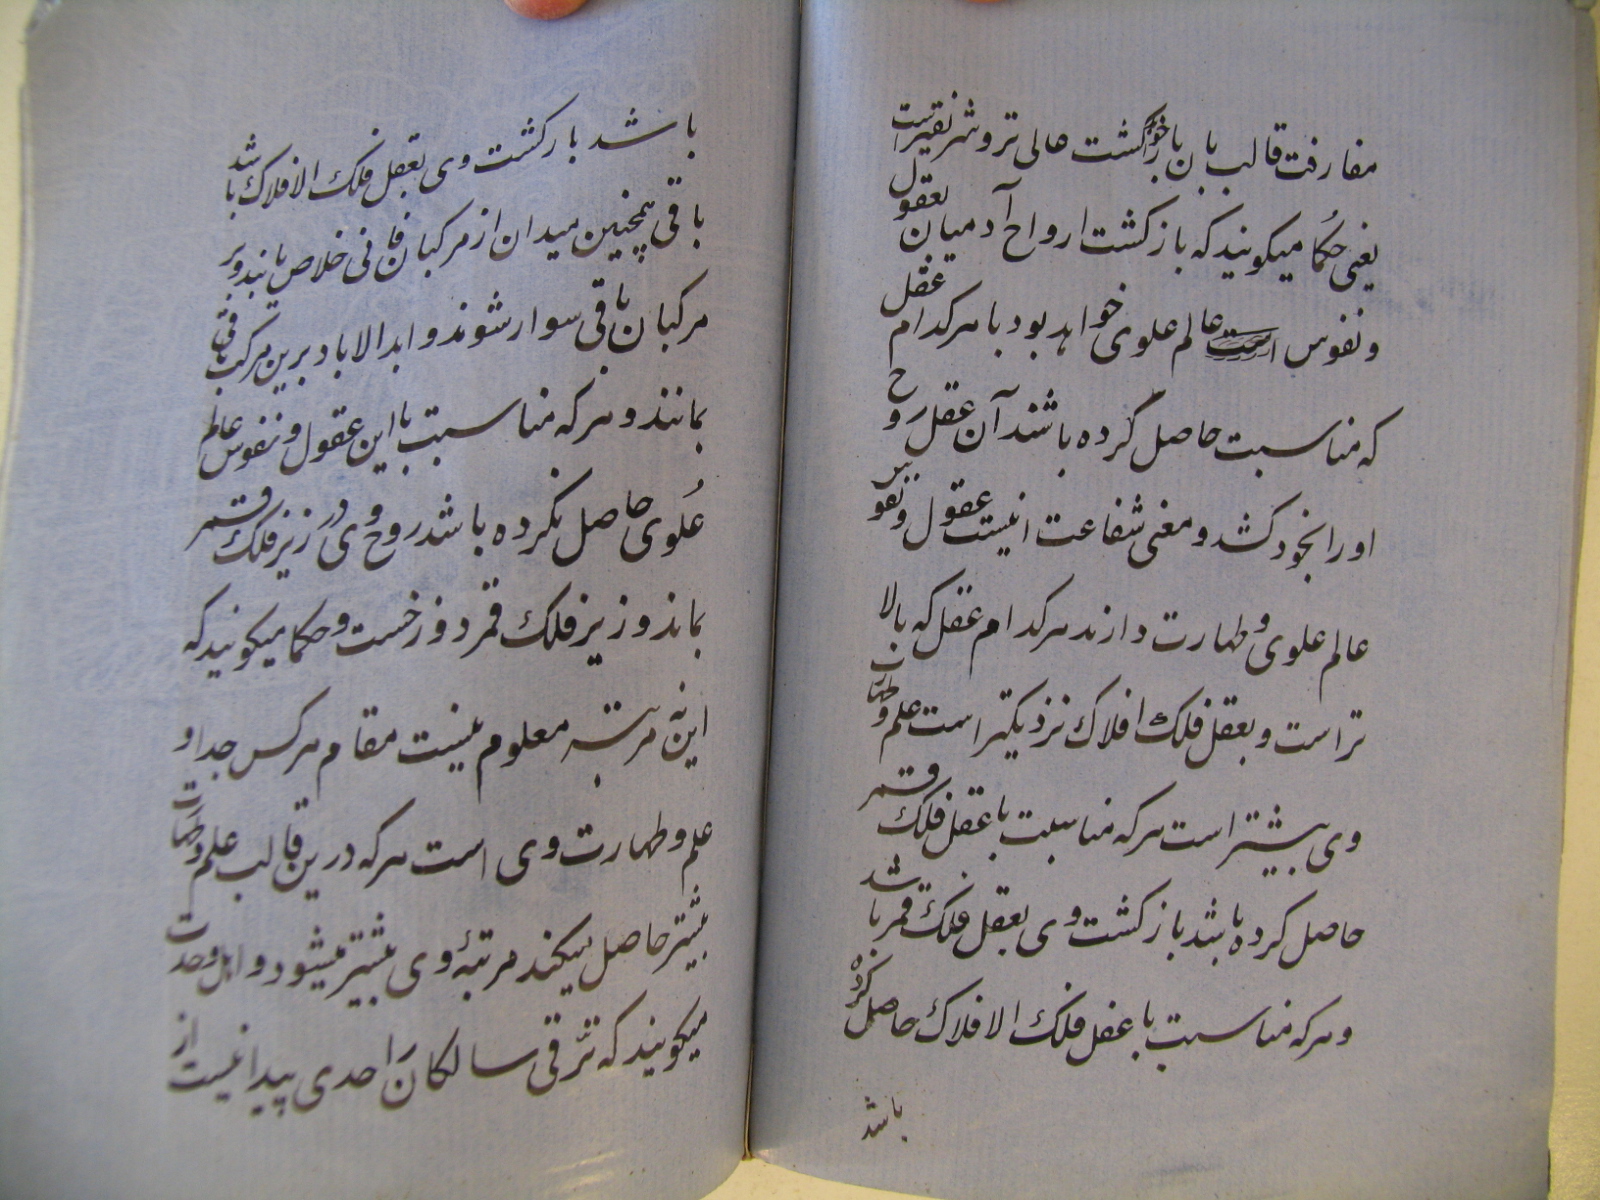 مفارقت قالب بآن بازگشت حالی تر و شریفتر است
یعنی حکما میکویند که بازکشت ارواح آدمیان بعقول
و نفوس عالم علوی خواهد بود با هرکدام عقل
که مناسبت حاصل کرده باشند آن عقل روح
او را بخود کشد و معنی شفاعت اینست عقول و نفوس
عالم علوی و طهارت دارند هرکدام عقل که بالا
تر است و بعقل فلک افلاک نزدیکتر است علم و طهارت
وی بیشتر است هرکه مناسبت با عقل فلک قمر
حاصل کرده باشد بازکشت وی بعقل فلک قمر باشد
و هرکه مناسبت با عقل فلک الافلاک حاصل کرده
باشد
باشد بازکشت وی بعقل فلک الافلاک باشد
باقی همچنین میدان از مرکبان فانی خلاص یابند و بر
مرکبان باقی سوار شوند و ابدالاباد برین مرکب باقی
بمانند و هرکه مناسبت با این عقول و نفوس عالم
عُلوی حاصل نکرده باشد روح وی در زیر فلک قمر
بماند و زیر فلک قمر دوزخست و حکما میکویند که
این نه مرتبه معلوم نیست مقام هرکس جدا و
علم و طهارت وی است هرکه درین قالب علم و طهارت
بیشتر حاصل میکند مرتبهٔ وی بیشتر میشود و اهل وحدت
میکویند که ترقی سالکان را حدی پیدا نیست از